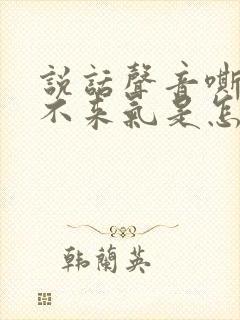 說話聲音嘶
不来氣是怎
韩蘭英